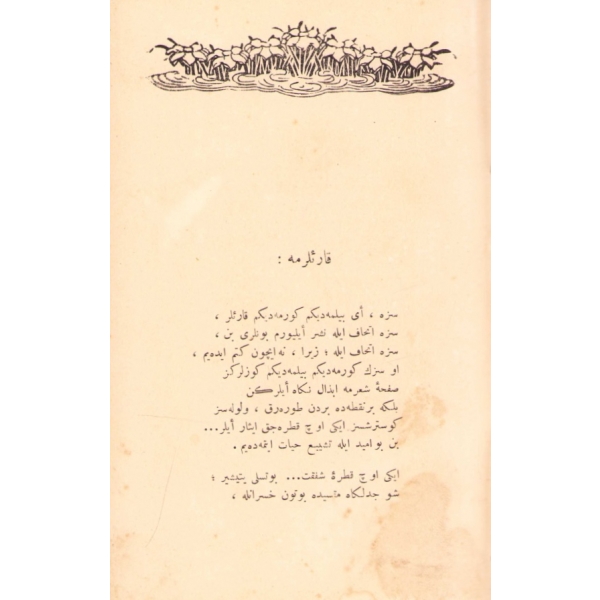 قارئلرمه :
سزه ، أی بیلمه‌دیکم کورمه‌دیکم قارئلر ،
سزه اتحاف ایله نشر أیلیورم بونلری بن ،
سزه اتحاف ایله ؛ زیرا ، نه‌ایچون کتم ایده‌یم ،
او سزك کورمه‌دیکم بیلمه‌دیکم کوزلرکز
صفحهٔ شعرمه ابذال نکاه أیلرکن
بلکه برنقطه‌ده بردن طوره‌رق ، ولوله‌سز
کوسترشسز ایکی اوچ قطره‌جق ایثار أیلر...
بن بوامید ایله تشییع حیات ایتمه‌ده‌یم .
ایکی اوچ قطرهٔ شفقت... بوتسلی یتیشیر ؛
شو جدلکاه متسیده بوتون خسرانله ،